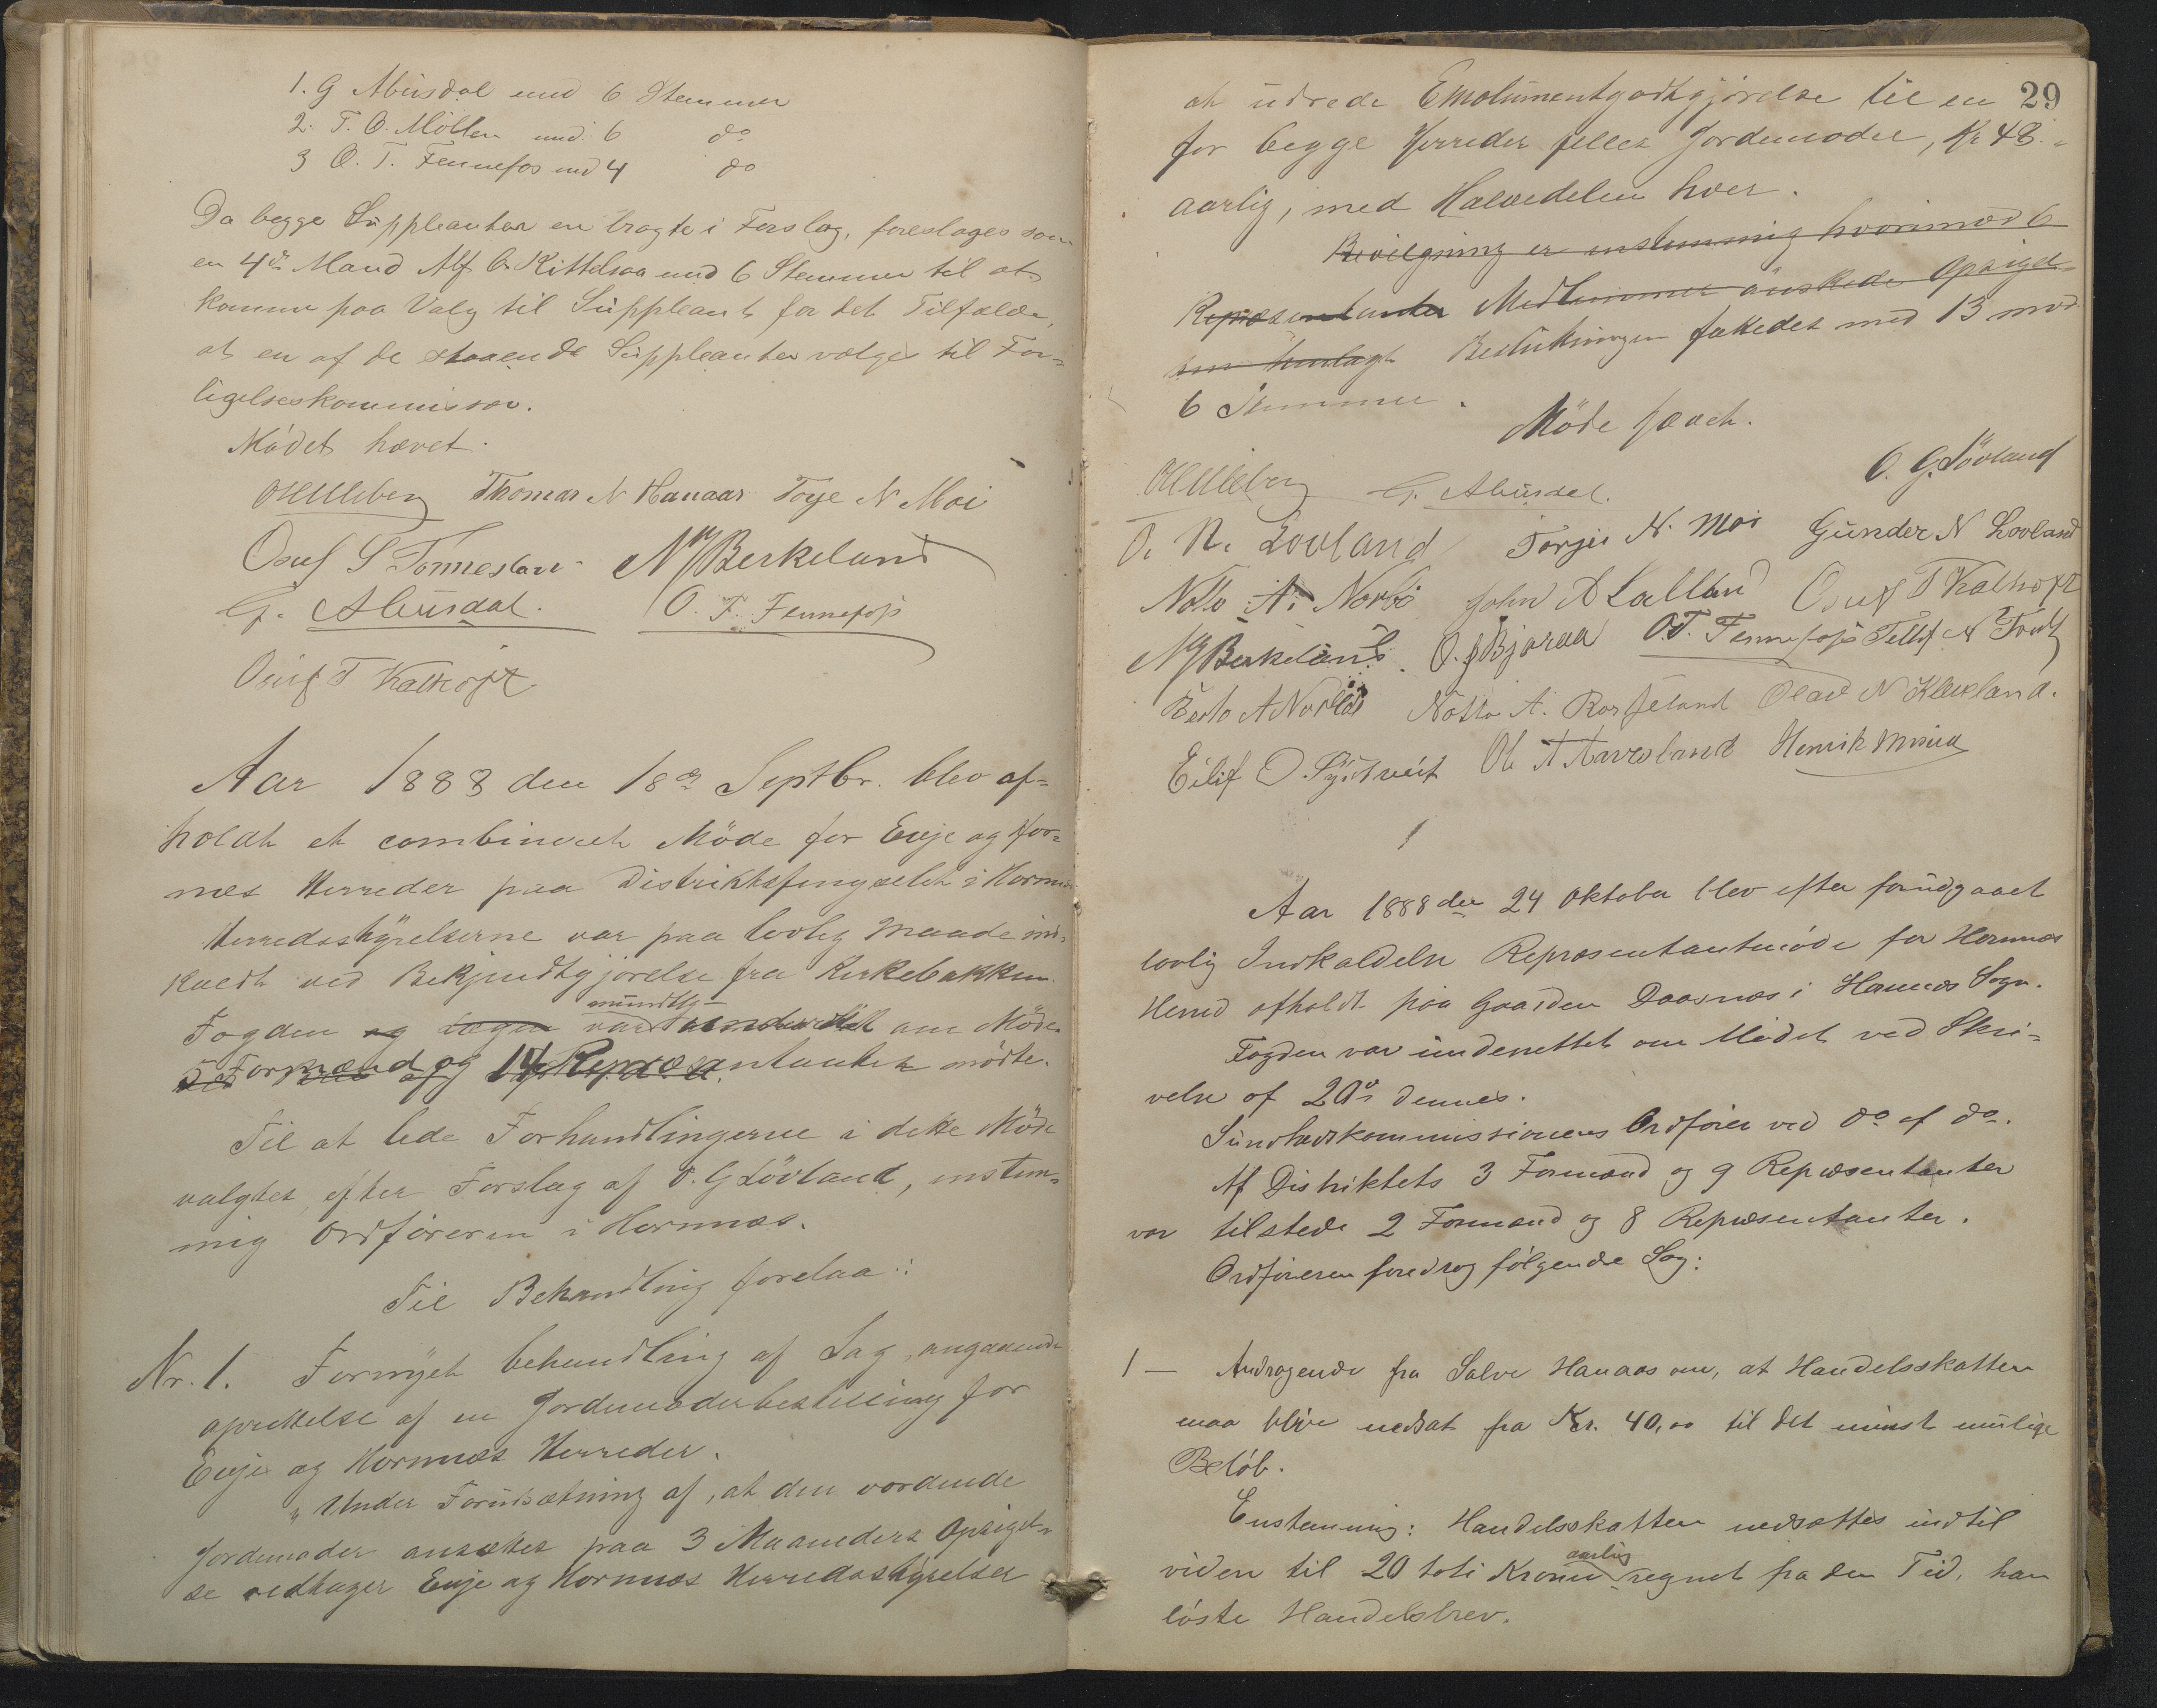 1. G Abusdal med 6 Stemmer
2. T. O. Möllen med 6 do
3 O. T. Fennefos med 4 do
Da begge Suppleanter en bragte i Forslag, foreslages som
en 4de Mand Alf O. Kittelsaa med 6 Stemmer til at
komme paa Valg til Suppleant for det Tilfælde,
at en af de staaende Suppleanter vælges til For-
ligelseskommissær.
Mödet hævet.
Thomas N Hanaas Torje N Moi
Osuf S Tönnesland N G Berkeland
G. Abusdal. O. T. Fennefoss
Osuf T Kalhoft
Aar 1888 den 18de Septbr. blev af-
holdt et combineret Möde for Evje og Hor-
næs Herreder paa Distriktsfengselet i Hornnæs
Herredsstyrelserne var paa lovlig Maade ind-
kaldt ved Bekjendtgjörelse fra Kirkebakken.
mundtlig
Fogden og Lægen var underrettet om Möde.
5 Formænd og 14 Repræsentanter mödte.
Til at lede Forhandlingerne i dette Möde
valgtes efter Forslag af O. G Lövland, enstem-
mig Ordföreren i Hornnæs.
Til Behandling forelaa:
Nr. 1. Fornyet behandling af Sag, angaaende
oprettelse af en Jordemoderbestilling for
Evje og Hornnæs Herreder.
"Under Forudsætning af, at den vordende
Jordemoder ansættes paa 3 Maaneders Opsigel-
se vedtager Evje og Hornnæs Herredsstyrelser
29
at udrede Emolumentgodtgjörelse til en
for begge Herreder felles Jordemoder, Kr 48.-
aarlig, med Halvedelen hver.
Bevilgning er enstemmig hvorimod 6
Repræsentanter Medlemmer önskede Opsigel-
sen Beslutningen fattedes med 13 mod
6 Stemmer.
Möde hævet.
O. G. Lövland
G. Abusdal.
O. N. Lovland Torjus N. Moi Gunder N Lovland
Notto A. Norbö John A Lalland Osuf T Kalhoft
N G Berkeland. O. G Bjoraa O. T. Fennefoss Tellef N
Terto A Norbö Notto A. Olav N Kleveland.
Eilif O. Ole T Aavesland Henrik
Aar 1888 den 24 Oktober blev efter forudgaaet
lovlig Indkaldelse Repræsentantmöde for Hornnæs
Herred afholdt paa Gaarden Daasnæs i Hornnæs Sogn.
Fogden var underrettet om Mödet ved Skri-
velse af 20de dennes.
Sundhedskommissionens Ordförer ved do af do.
Af Distriktets 3 Formænd og 9 Repræsentanter
var tilstede 2 Formænd og 8 Repræsentanter.
Ordföreren foredrog fölgende Sag:
1 — Andragende fra Salve Hanaas om, at Handelsskatten
maa blive nedsat fra Kr. 40,00 til det minst mulige
Belöb.
Enstemmig: Handelsskatten nedsættes indtil
aarlig
videre til 20 toti Kroner regnet fra den Tid, han
löste Handelsbrev.